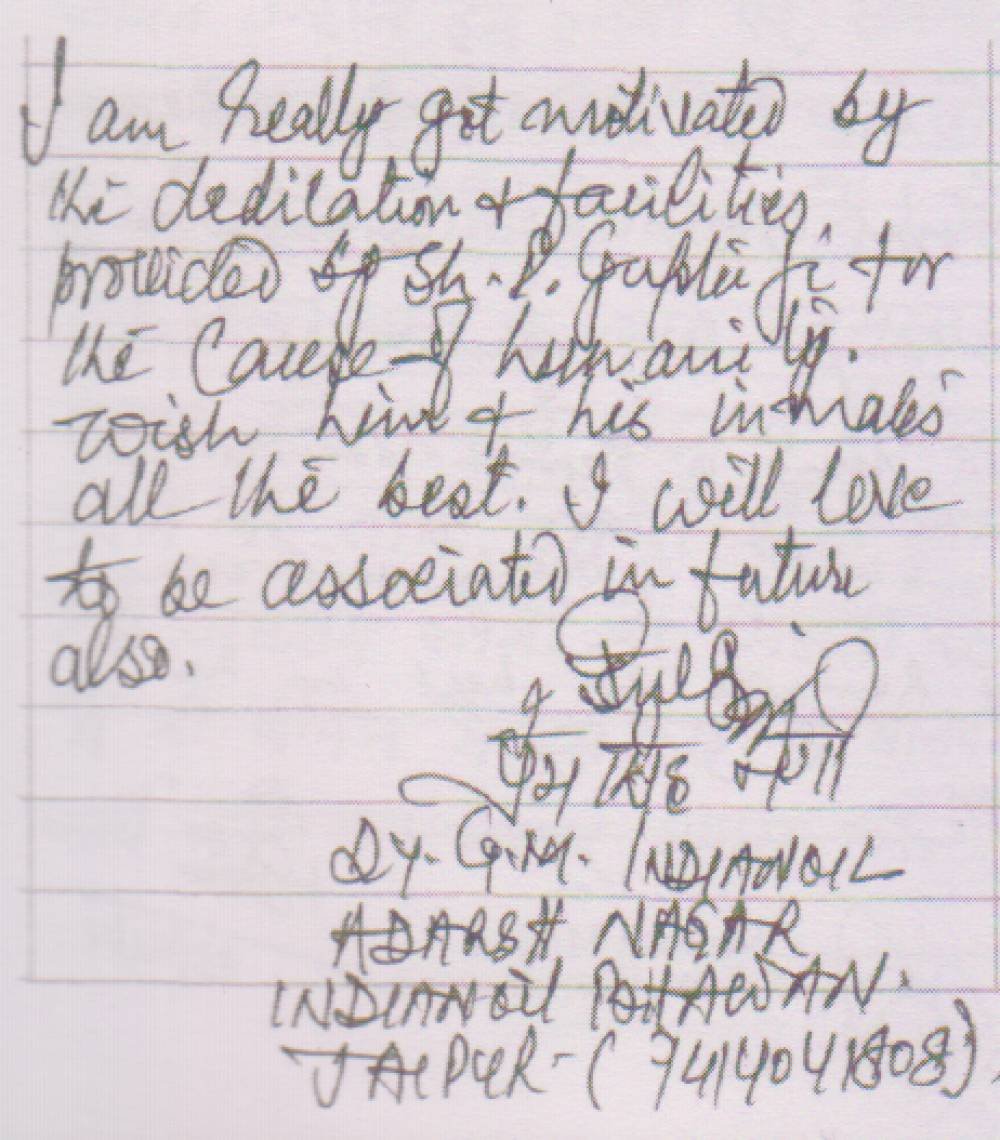 I am really got motivated by
the dedication & facilities
provided by Sh. P. Gupta Ji for
the cause of humanity.
wish him & his inmates
all the best. I will love
to be associated in future
also.
Dy. G.M. INDIANOIL
ADARSH NAGAR
INDIANOIL BHAWAN.
JAIPUR - (7414041808).